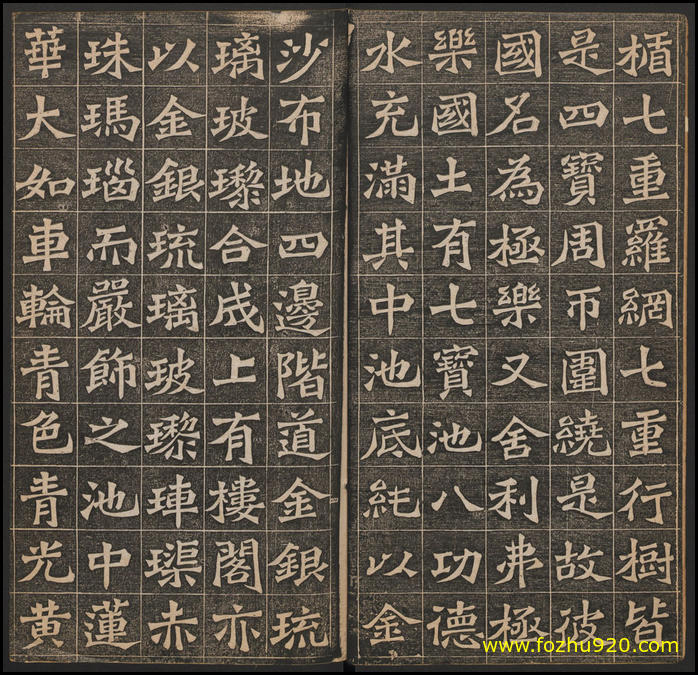 楯七重羅網七重行樹皆
是四寶周帀圍繞是故彼
國名為極樂又舍利弗極
樂國土有七寶池八功德
水充滿其中池底純以金
沙布地四邊階道金銀琉
璃玻瓈合成上有樓閣亦
以金銀琉璃玻瓈硨磲赤
珠瑪瑙而嚴飾之池中蓮
華大如車輪青色青光黃
www.fozhu920.com